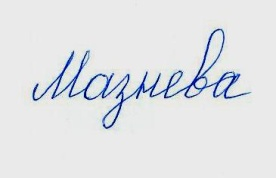 Мазнева